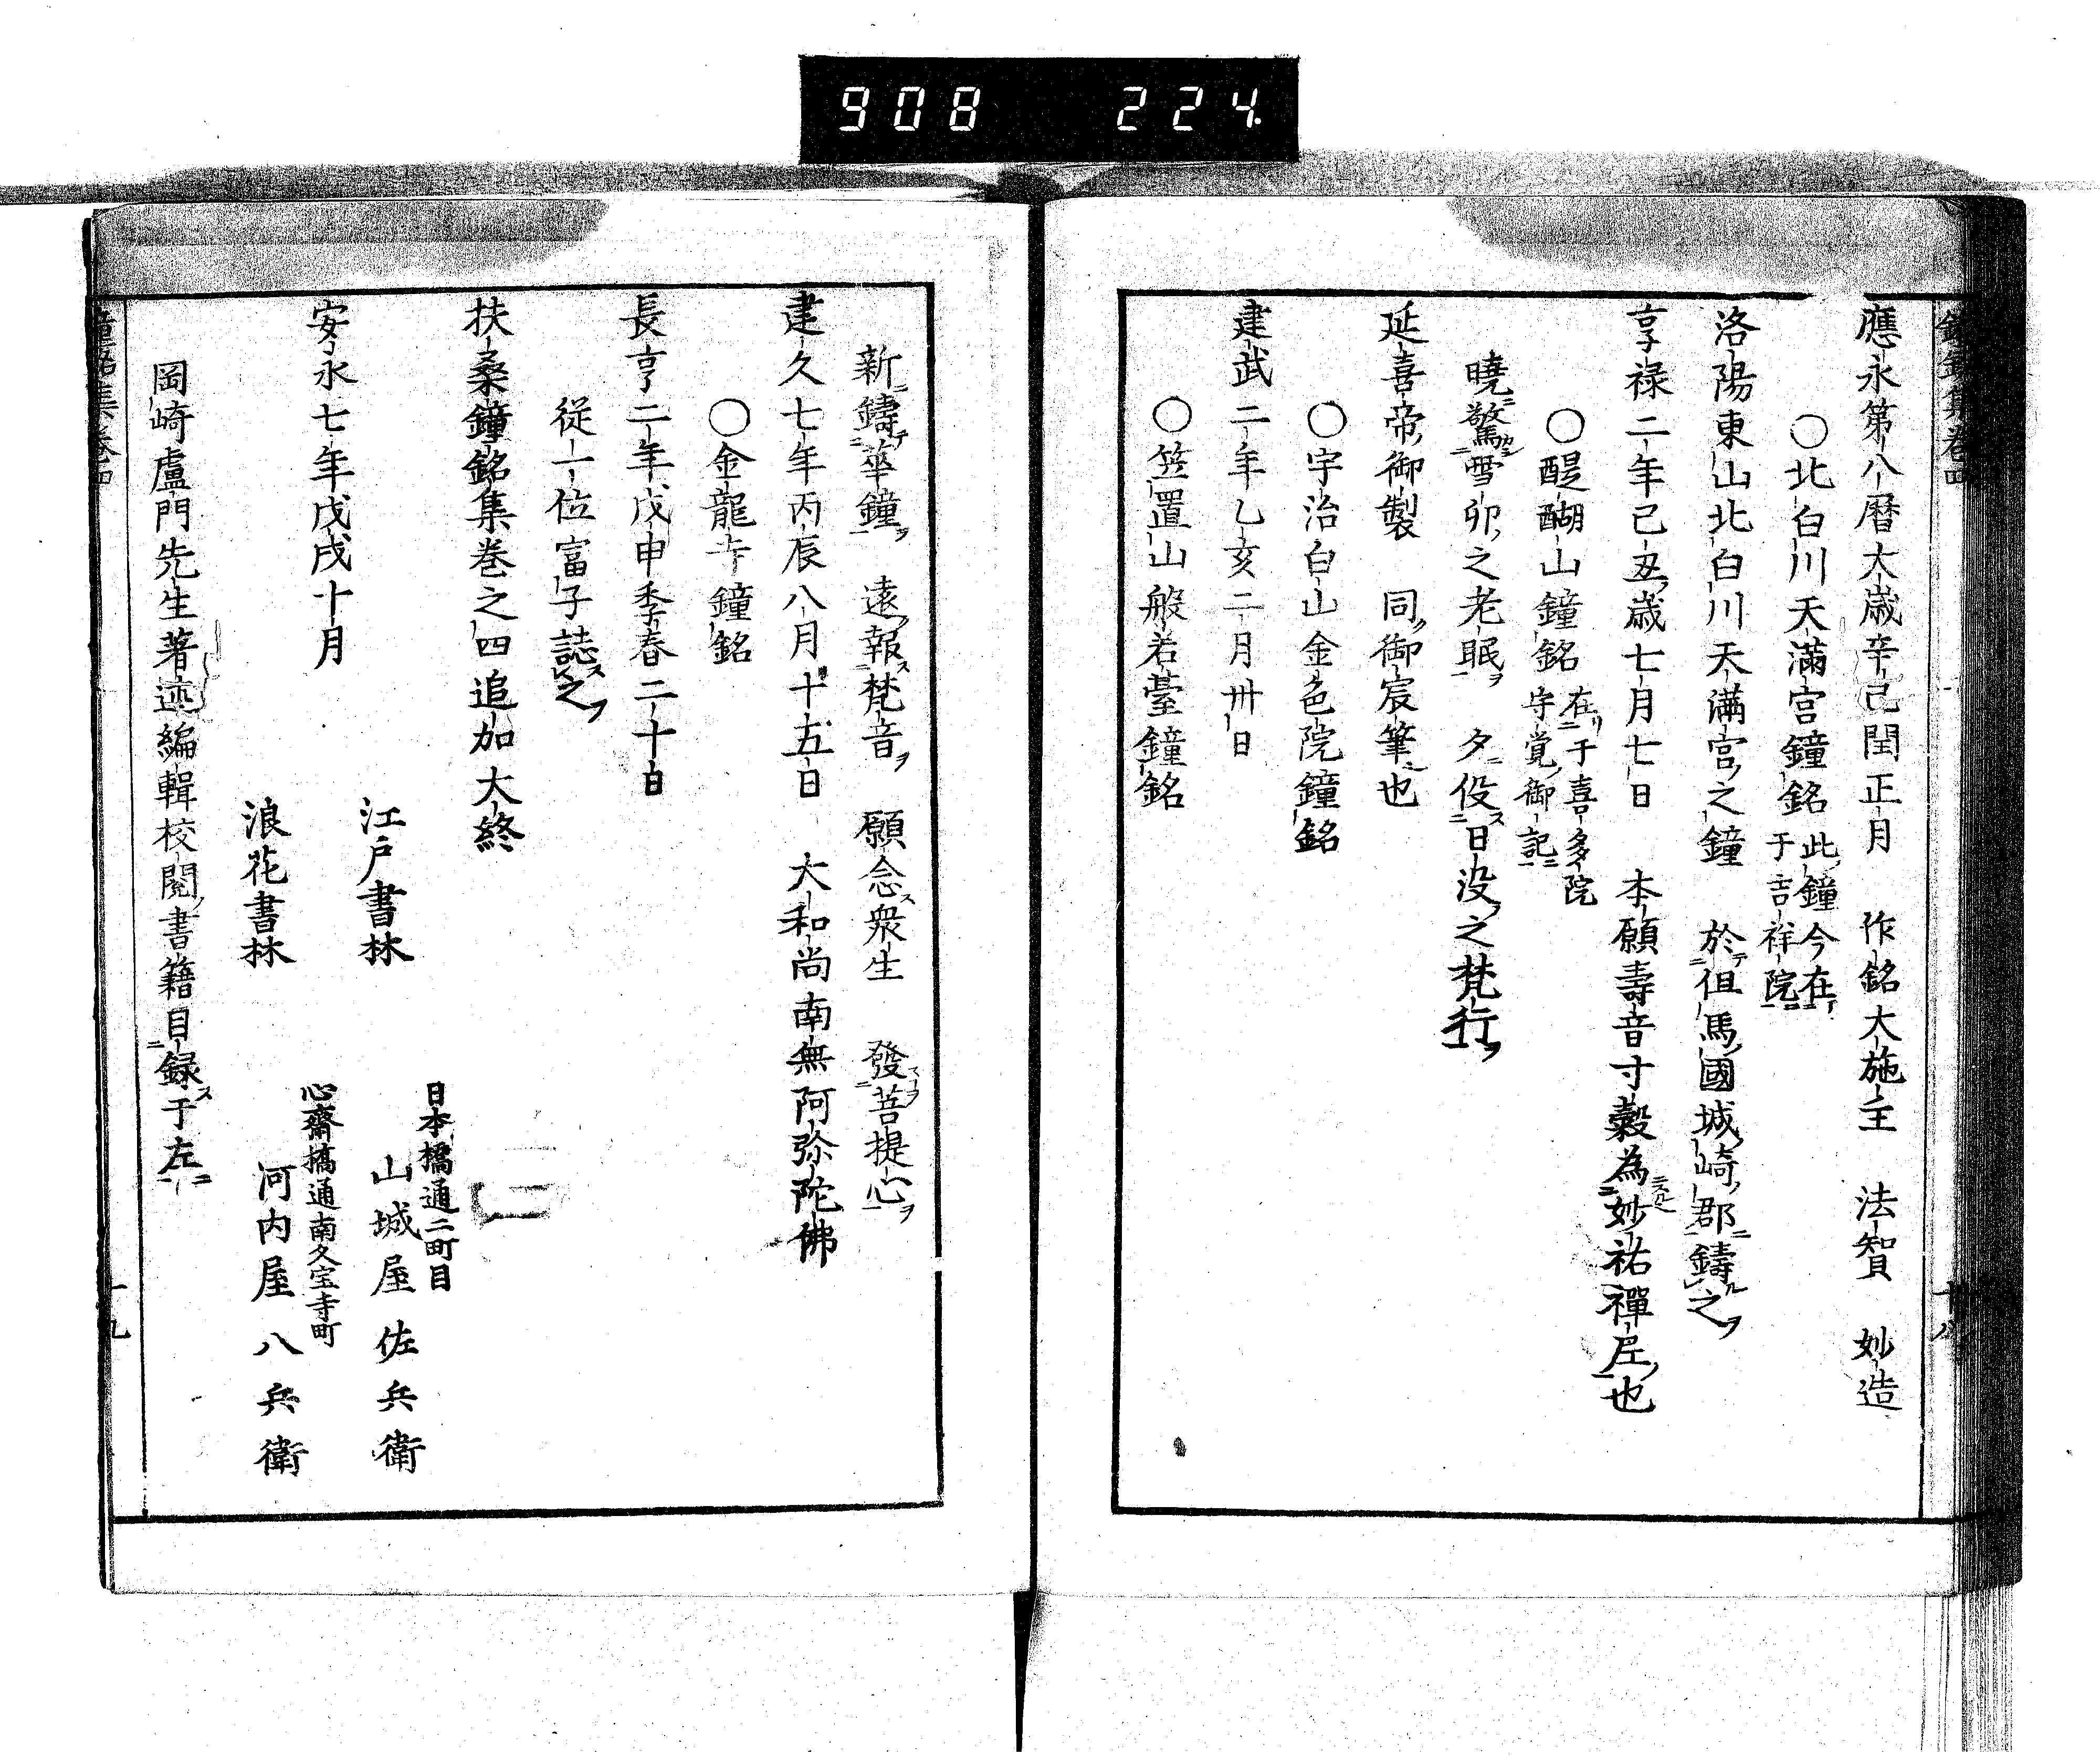 908 224
鐘銘集巻四
應永第八暦大歳辛已閏正月 作銘大施主 法智 妙造
○北白川天滿宮鐘銘 此鐘今在
于吉祥院
洛陽東山北白川天満宮之鐘 於但馬國城崎郡鑄之
享禄二年己丑歳七月七日 本願壽音寸穀為妙祐禪尼也
○醍醐山鐘銘 在于喜多院
守覚御記
曉驚雪卯之老眠 夕役日没之梵行
延喜帝御製 同御宸筆也
○宇治白山金色院鐘銘
建武二年乙亥二月卅日
○笠置山般若臺鐘銘
十八
新鑄華鐘 遠報梵音 願念衆生 發菩提心
建久七年丙辰八月十五日 大和尚南無阿弥陀佛
○金龍寺鐘銘
長亨二年戊申季春二十日
従一位富子誌之
扶桑鐘銘集巻之四追加大終
日本橋通二町目
江戸書林 山城屋佐兵衛
安永七年戊戌十月
心齋橋通南久宝寺町
浪花書林 河内屋八兵衛
岡崎盧門先生著述編輯校閲書籍目録于左
鐘銘集巻四
十九